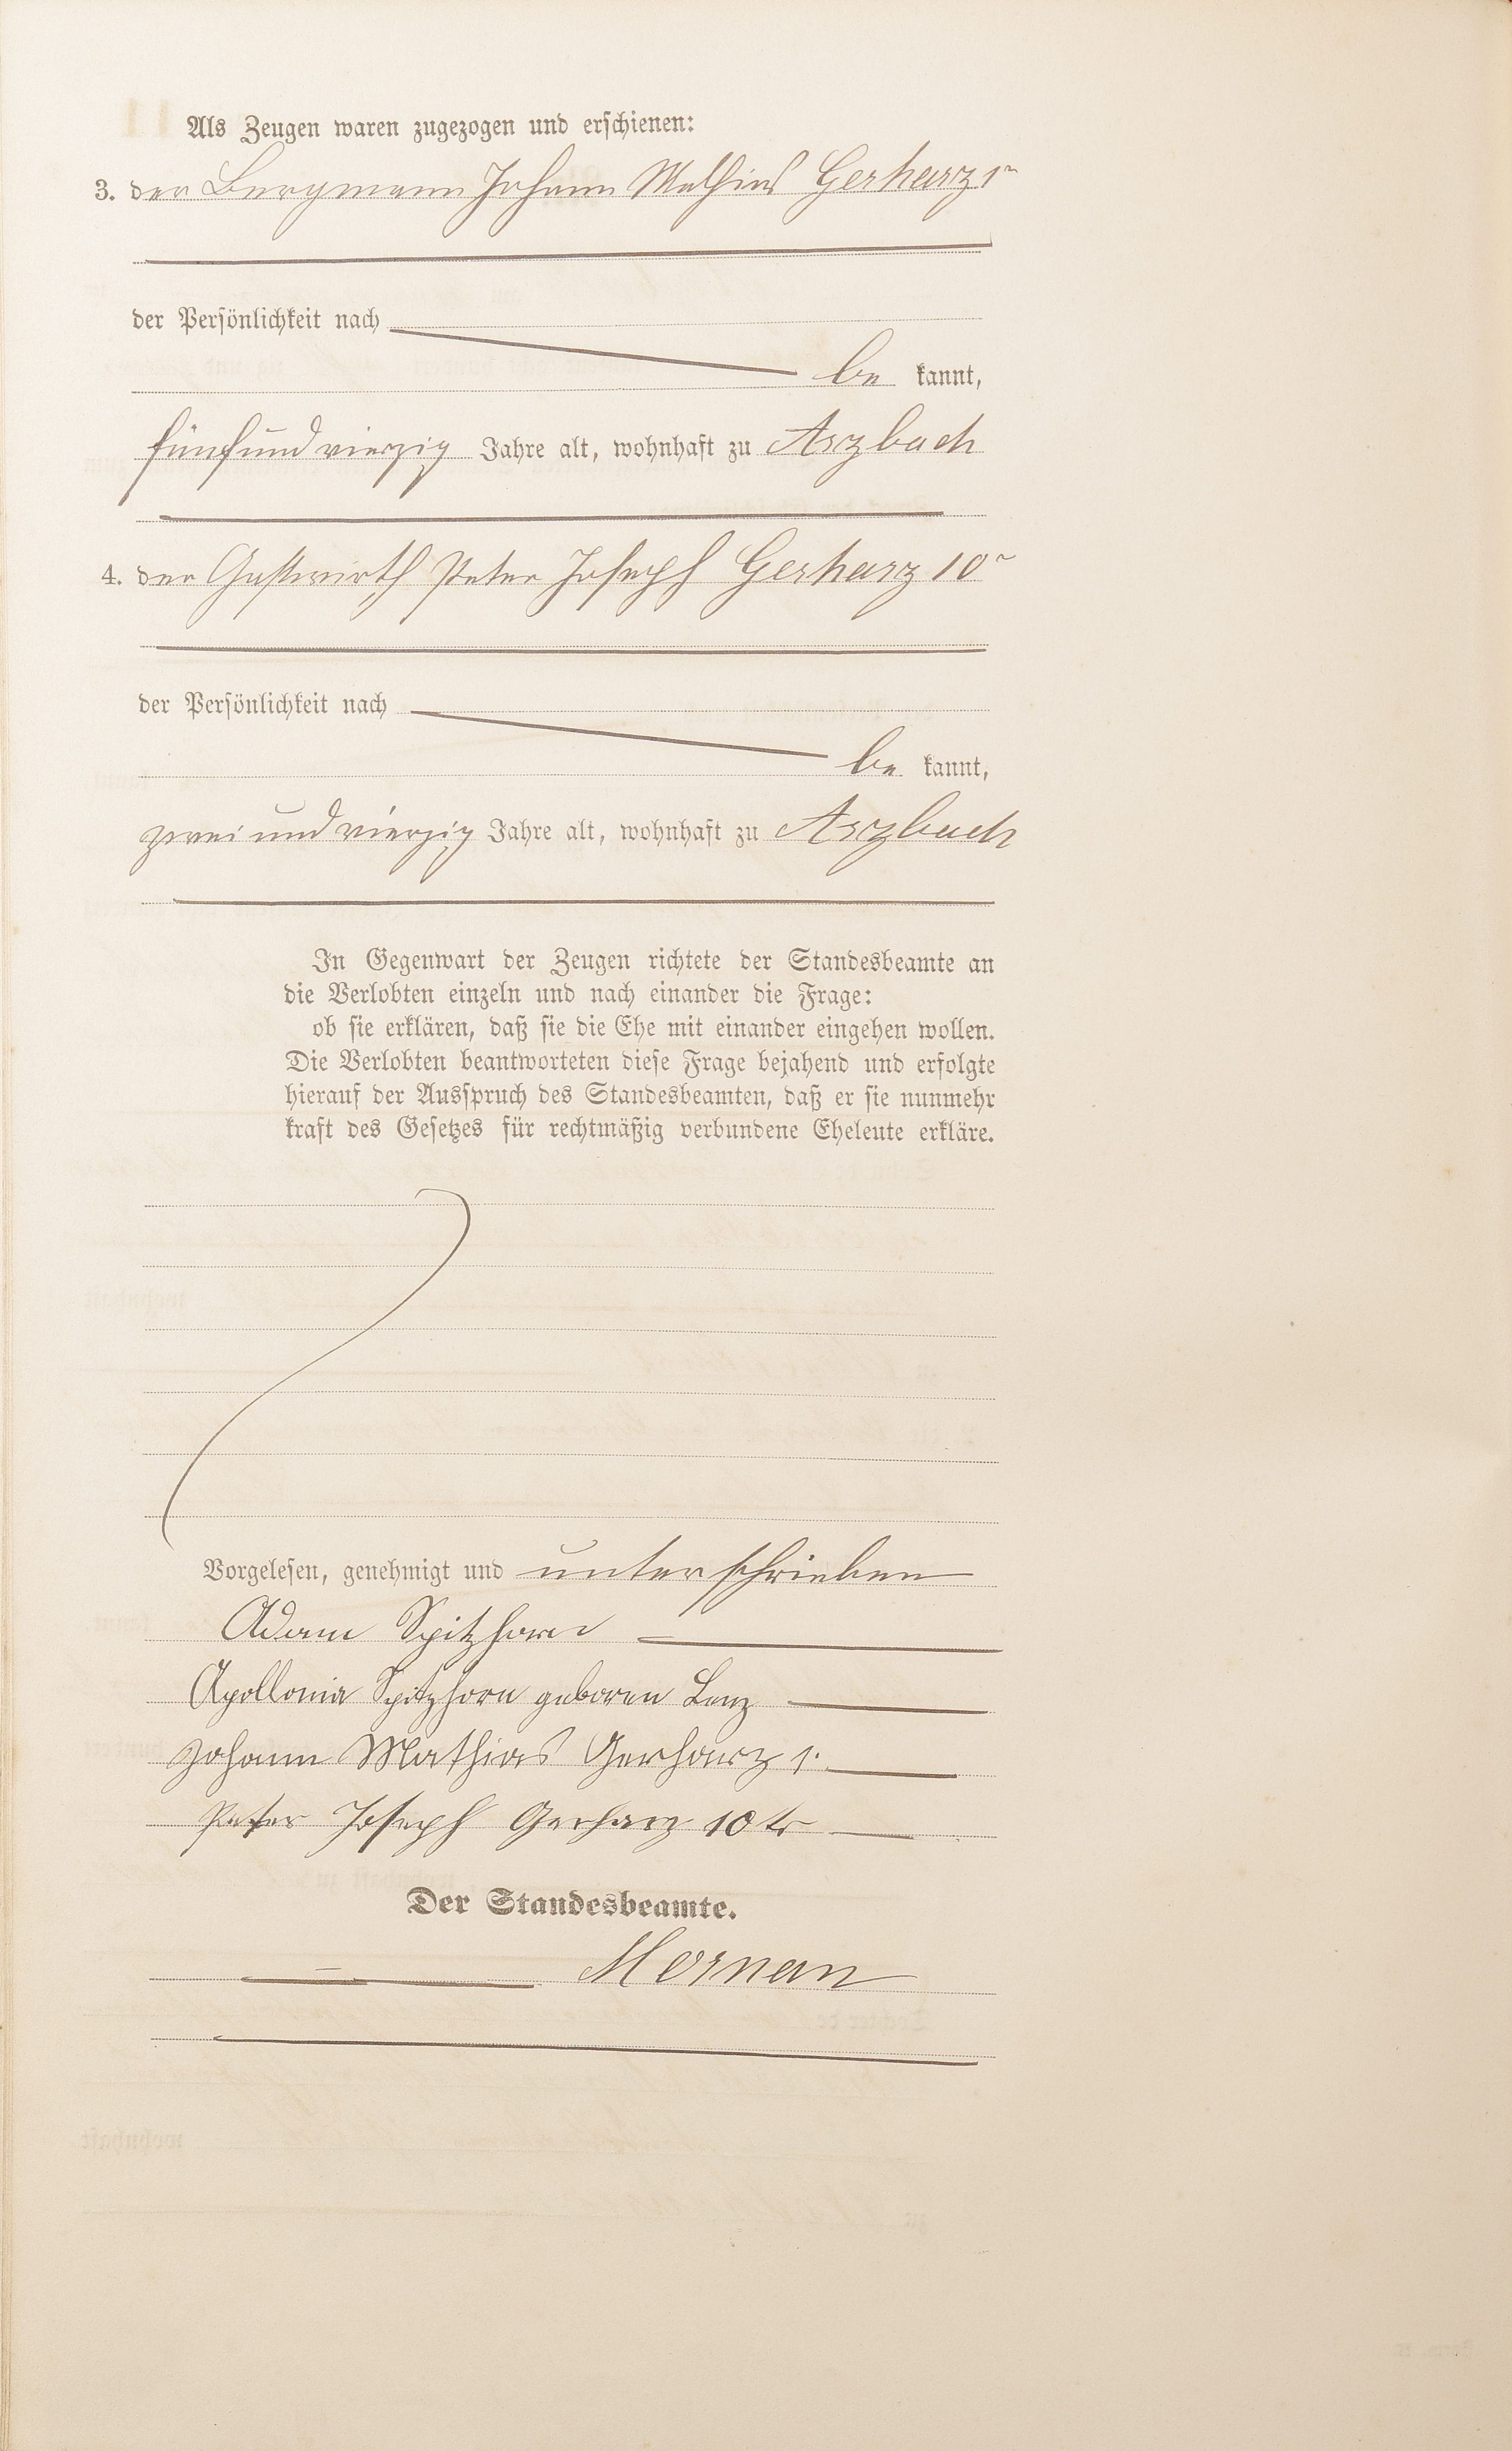 Als Zeugen waren zugezogen und erschienen:
3. der Bergmann Johann Mathias Gerharz 1r
der Persönlichkeit nach
be kannt,
fünfundvierzig Jahre alt, wohnhaft zu Arzbach
4. der Gastwirth Peter Joseph Gerharz 10r
der Persönlichkeit nach
be kannt,
zweiundvierzig Jahre alt, wohnhaft zu Arzbach
In Gegenwart der Zeugen richtete der Standesbeamte an
die Verlobten einzeln und nach einander die Frage:
ob sie erklären, daß sie die Ehe mit einander eingehen wollen.
Die Verlobten beantworteten diese Frage bejahend und erfolgte
hierauf der Ausspruch des Standesbeamten, daß er sie nunmehr
kraft des Gesetzes für rechtmäßig verbundene Eheleute erkläre.
Vorgelesen, genehmigt und unterschrieben
Adam Spitzhorn
Apollonia Spitzhorn geboren Lenz
Johann Mathias Gerharz 1.
Peter Joseph Gerharz 10tr
Der Standesbeamte.